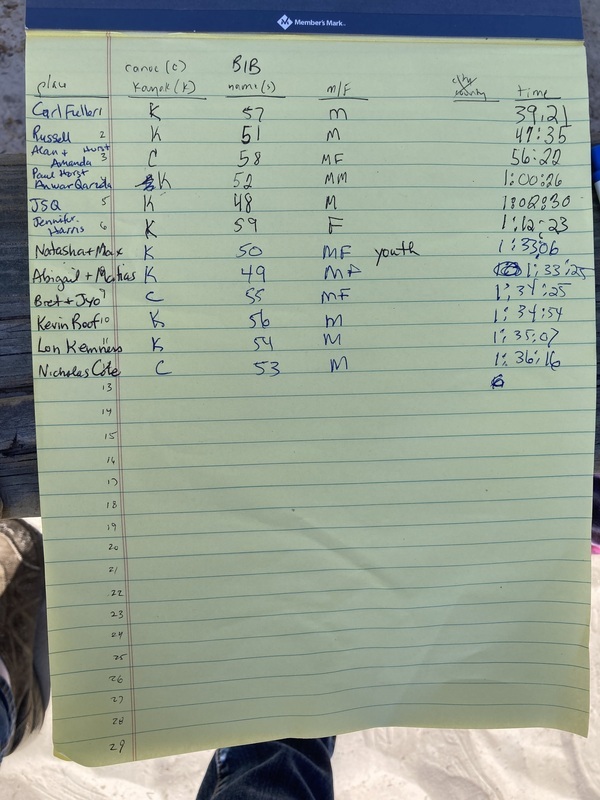 Member's Mark
canoe (c) BIB
place kayak (K) name(s) M/F city county time
Carl Fulleri K 57 M 39,21
Russell 2 K 51 M 47:35
Alan + Hurst Amanda 3 C 58 MF 56:22
Paul Horst Anwar K 52 MM 1:00:26
JSQ 5 K 48 M 1:02:30
Jennifer Harris 6 K 59 F 1:12:23
Natasha + Max K 50 MF youth 1:33:06
Abigail + Matias K 49 MF 1:33:25
Bret + Jyo 9 C 55 MF 1:34:25
Kevin Boof 10 K 56 M 1:34:54
Lon Kemness 11 K 54 M 1:35:07
Nicholas Cote C 53 M 1:36:16
13
14
15
16
17
18
19
20
21
22
23
24
25
26
27
28
29